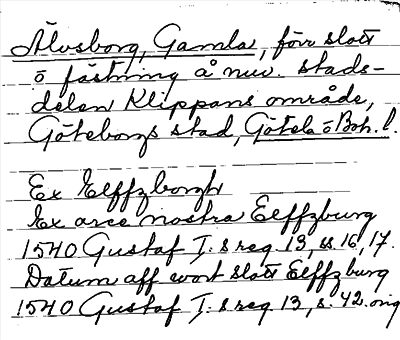 Älvsborg, Gamla, förv slott
o fästning å nuv. stads-
delen Klippans område,
Göteborgs stad, Götebo Boh. l.
Ex Elffzborgh
Ex arce nostra Elffzburg
1540 Gustaf I:s reg 13, ss 16, 17.
Datum aff wort slott Elffzburg
1540 Gustaf I:s reg 13, s. 42. orig